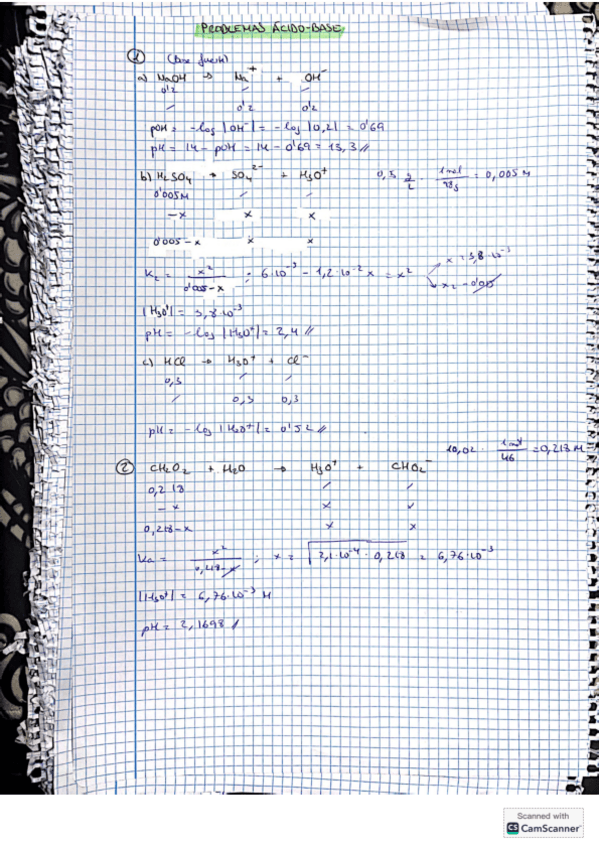 PROBLEMAS ÁCIDO-BASE
① (base fuerte)
a) NaOH → Na⁺ + OH⁻
0'2 / /
/ 0'2 0'2
pOH = -log |OH⁻| = -log |0,2| = 0'69
pH = 14 - pOH = 14 - 0'69 = 13,3 //
b) H₂SO₄ → SO₄²⁻ + H₃O⁺ 0,5 g/L · 1mol/98g = 0,005 M
0'005M / /
-x x x
0'005-x x x
x²/0'005-x ; 6·10⁻⁵ - 1,2·10⁻² x = x² x = 3,8·10⁻³
|H₃O⁺| = 3,8·10⁻³
pH = -log |H₃O⁺| = 2,4 //
c) HCl → H₃O⁺ + Cl⁻
0,3 / /
/ 0,3 0,3
pH = -log |H₃O⁺| = 0'52 //
② CH₂O₂ + H₂O → H₃O⁺ + CHO₂⁻ 10,02 · 1mol/46 = 0,218 M
0,218 / /
-x x x
0,218-x x x
Ka = x²/0,218-x ; x = √2,1·10⁻⁴ · 0,218 = 6,76·10⁻³
|H₃O⁺| = 6,76·10⁻³ M
pH = 2,1698 //
Scanned with
CS CamScanner